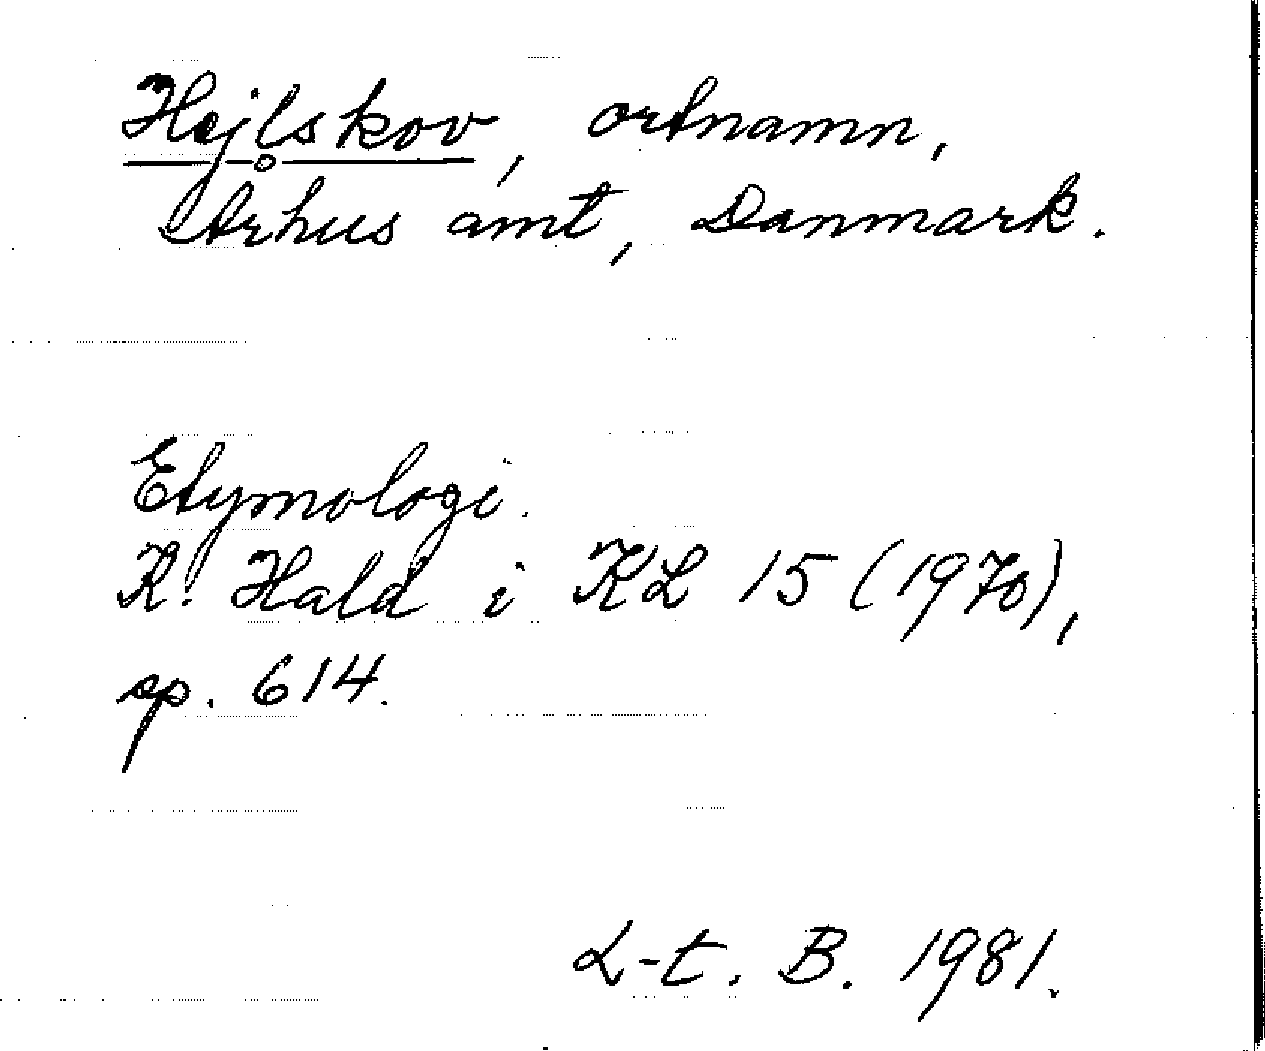 Hejlskov, ortnamn,
Århus amt, Danmark.
Etymologi.
K. Hald i KL 15 (1970),
sp. 614.
L-t. B. 1981.